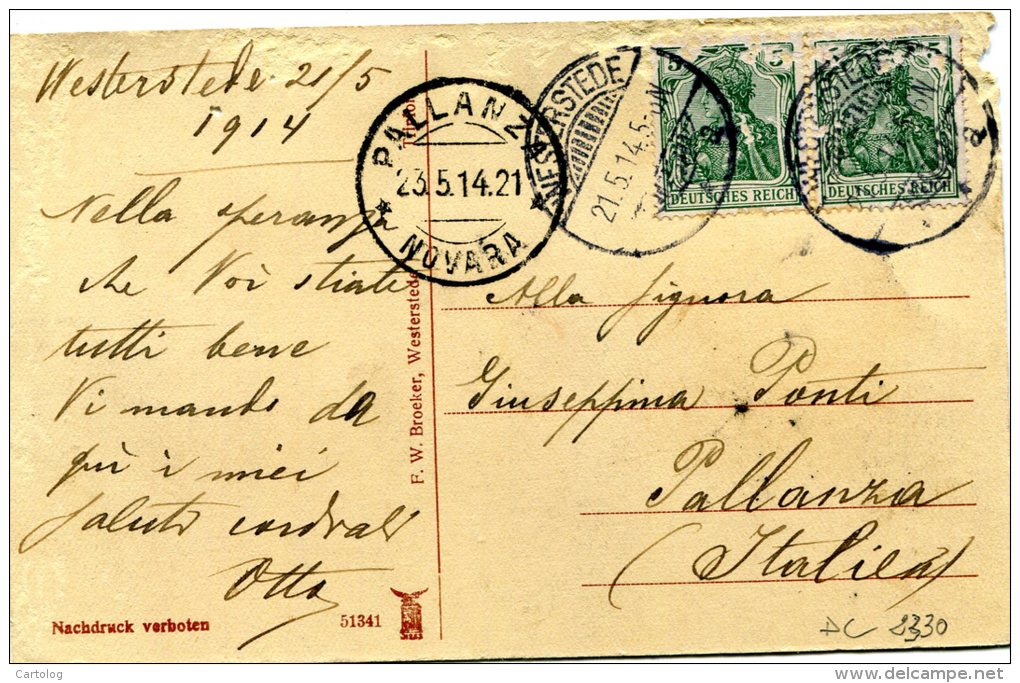 Westerstede 21/5
1914
Nella speranza
che Voi stiate
tutti bene
Vi mando da
quì i miei
saluti cordiali
Otto
Nachdruck verboten
51341
F. W. Broeker, Westerstede
PALLANZA
23.5.14.21
* NOVARA *
WESTERSTEDE
21.5.14.5-6N
DEUTSCHES REICH
5
DEUTSCHES REICH
5
Alla Signora
Giuseppina Ponti
Pallanza
(Italien)
DC 2330
Cartolog
www.delcampe.net